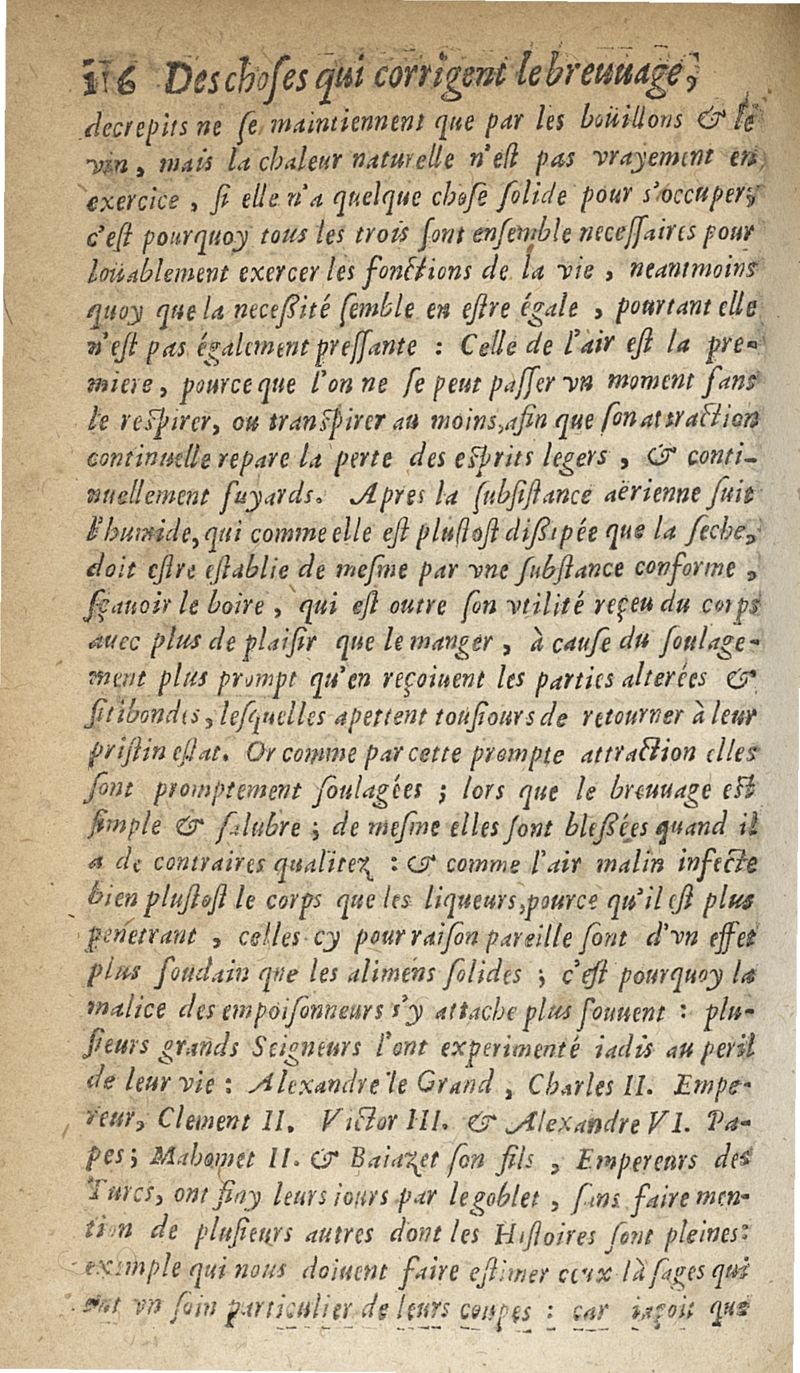 116 Des choſes qui corrigent le breuuage,
decrepits ne ſe maintiennent que par les boüillons & le
vin, mais la chaleur naturelle n'eſt pas vrayement en
exercice, ſi elle n'a quelque choſe ſolide pour s'occuper,
c'eſt pourquoy tous les trois ſont enſemble neceſſaires pour
loüablement exercer les fonctions de la vie, neantmoins
quoy que la neceſſité ſemble en eſtre égale, pourtant elle
n'eſt pas également preſſante : Celle de l'air eſt la pre-
miere, pource que l'on ne ſe peut paſſer vn moment ſans
le reſpirer, ou tranſpirer au moins, afin que ſon attraction
continuelle repare la perte des eſprits legers, & conti-
nuellement fuyards. Apres la ſubſiſtance aërienne ſuit
l'humide, qui comme elle eſt pluſtoſt diſſipée que la ſeche,
doit eſtre eſtablie de meſme par vne ſubſtance conforme,
ſçauoir le boire, qui eſt outre ſon vtilité reçeu du corps
auec plus de plaiſir que le manger, à cauſe du ſoulage-
ment plus prompt qu'en reçoiuent les parties alterées &
ſitibondes, leſquelles apettent touſiours de retourner à leur
priſtin eſtat. Or comme par cette prompte attraction elles
ſont promptement ſoulagées ; lors que le breuuage eſt
ſimple & ſalubre ; de meſme elles ſont bleſſées quand il
a de contraires qualitez : & comme l'air malin infecte
bien pluſtoſt le corps que les liqueurs, pource qu'il eſt plus
penetrant, celles cy pour raiſon pareille ſont d'vn effet
plus ſoudain que les alimens ſolides ; c'eſt pourquoy la
malice des empoiſonneurs s'y attache plus ſouuent : plu-
ſieurs grands Seigneurs l'ont experimenté iadis au peril
de leur vie : Alexandre le Grand, Charles II. Empe-
reur, Clement II. Victor III. & Alexandre VI. Pa-
pes ; Mahomet II. & Baiazet ſon fils, Empereurs des
Turcs, ont finy leurs iours par le goblet, ſans faire men-
tion de pluſieurs autres dont les Hiſtoires ſont pleines:
exemple qui nous doiuent faire eſtimer ceux là ſages qui
ont vn ſoin particulier de leurs coupes : car iaçoit que